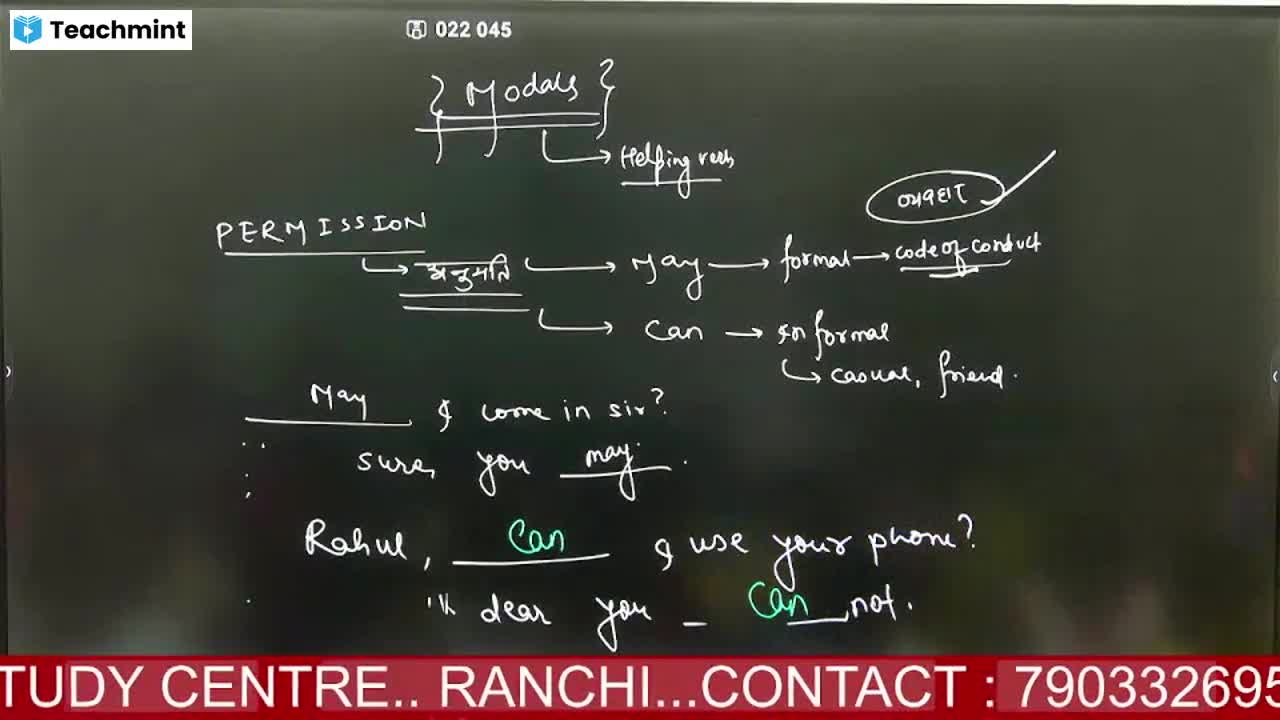 Teachmint
022 045
Modals
Helping verb
व्यवहार
PERMISSION
अनुमति → May → formal → code of conduct
can → Informal
casual, friend.
May I come in sir?
sure, you may.
Rahul, Can I use your phone?
dear you Can not.
TUDY CENTRE.. RANCHI...CONTACT : 790332695